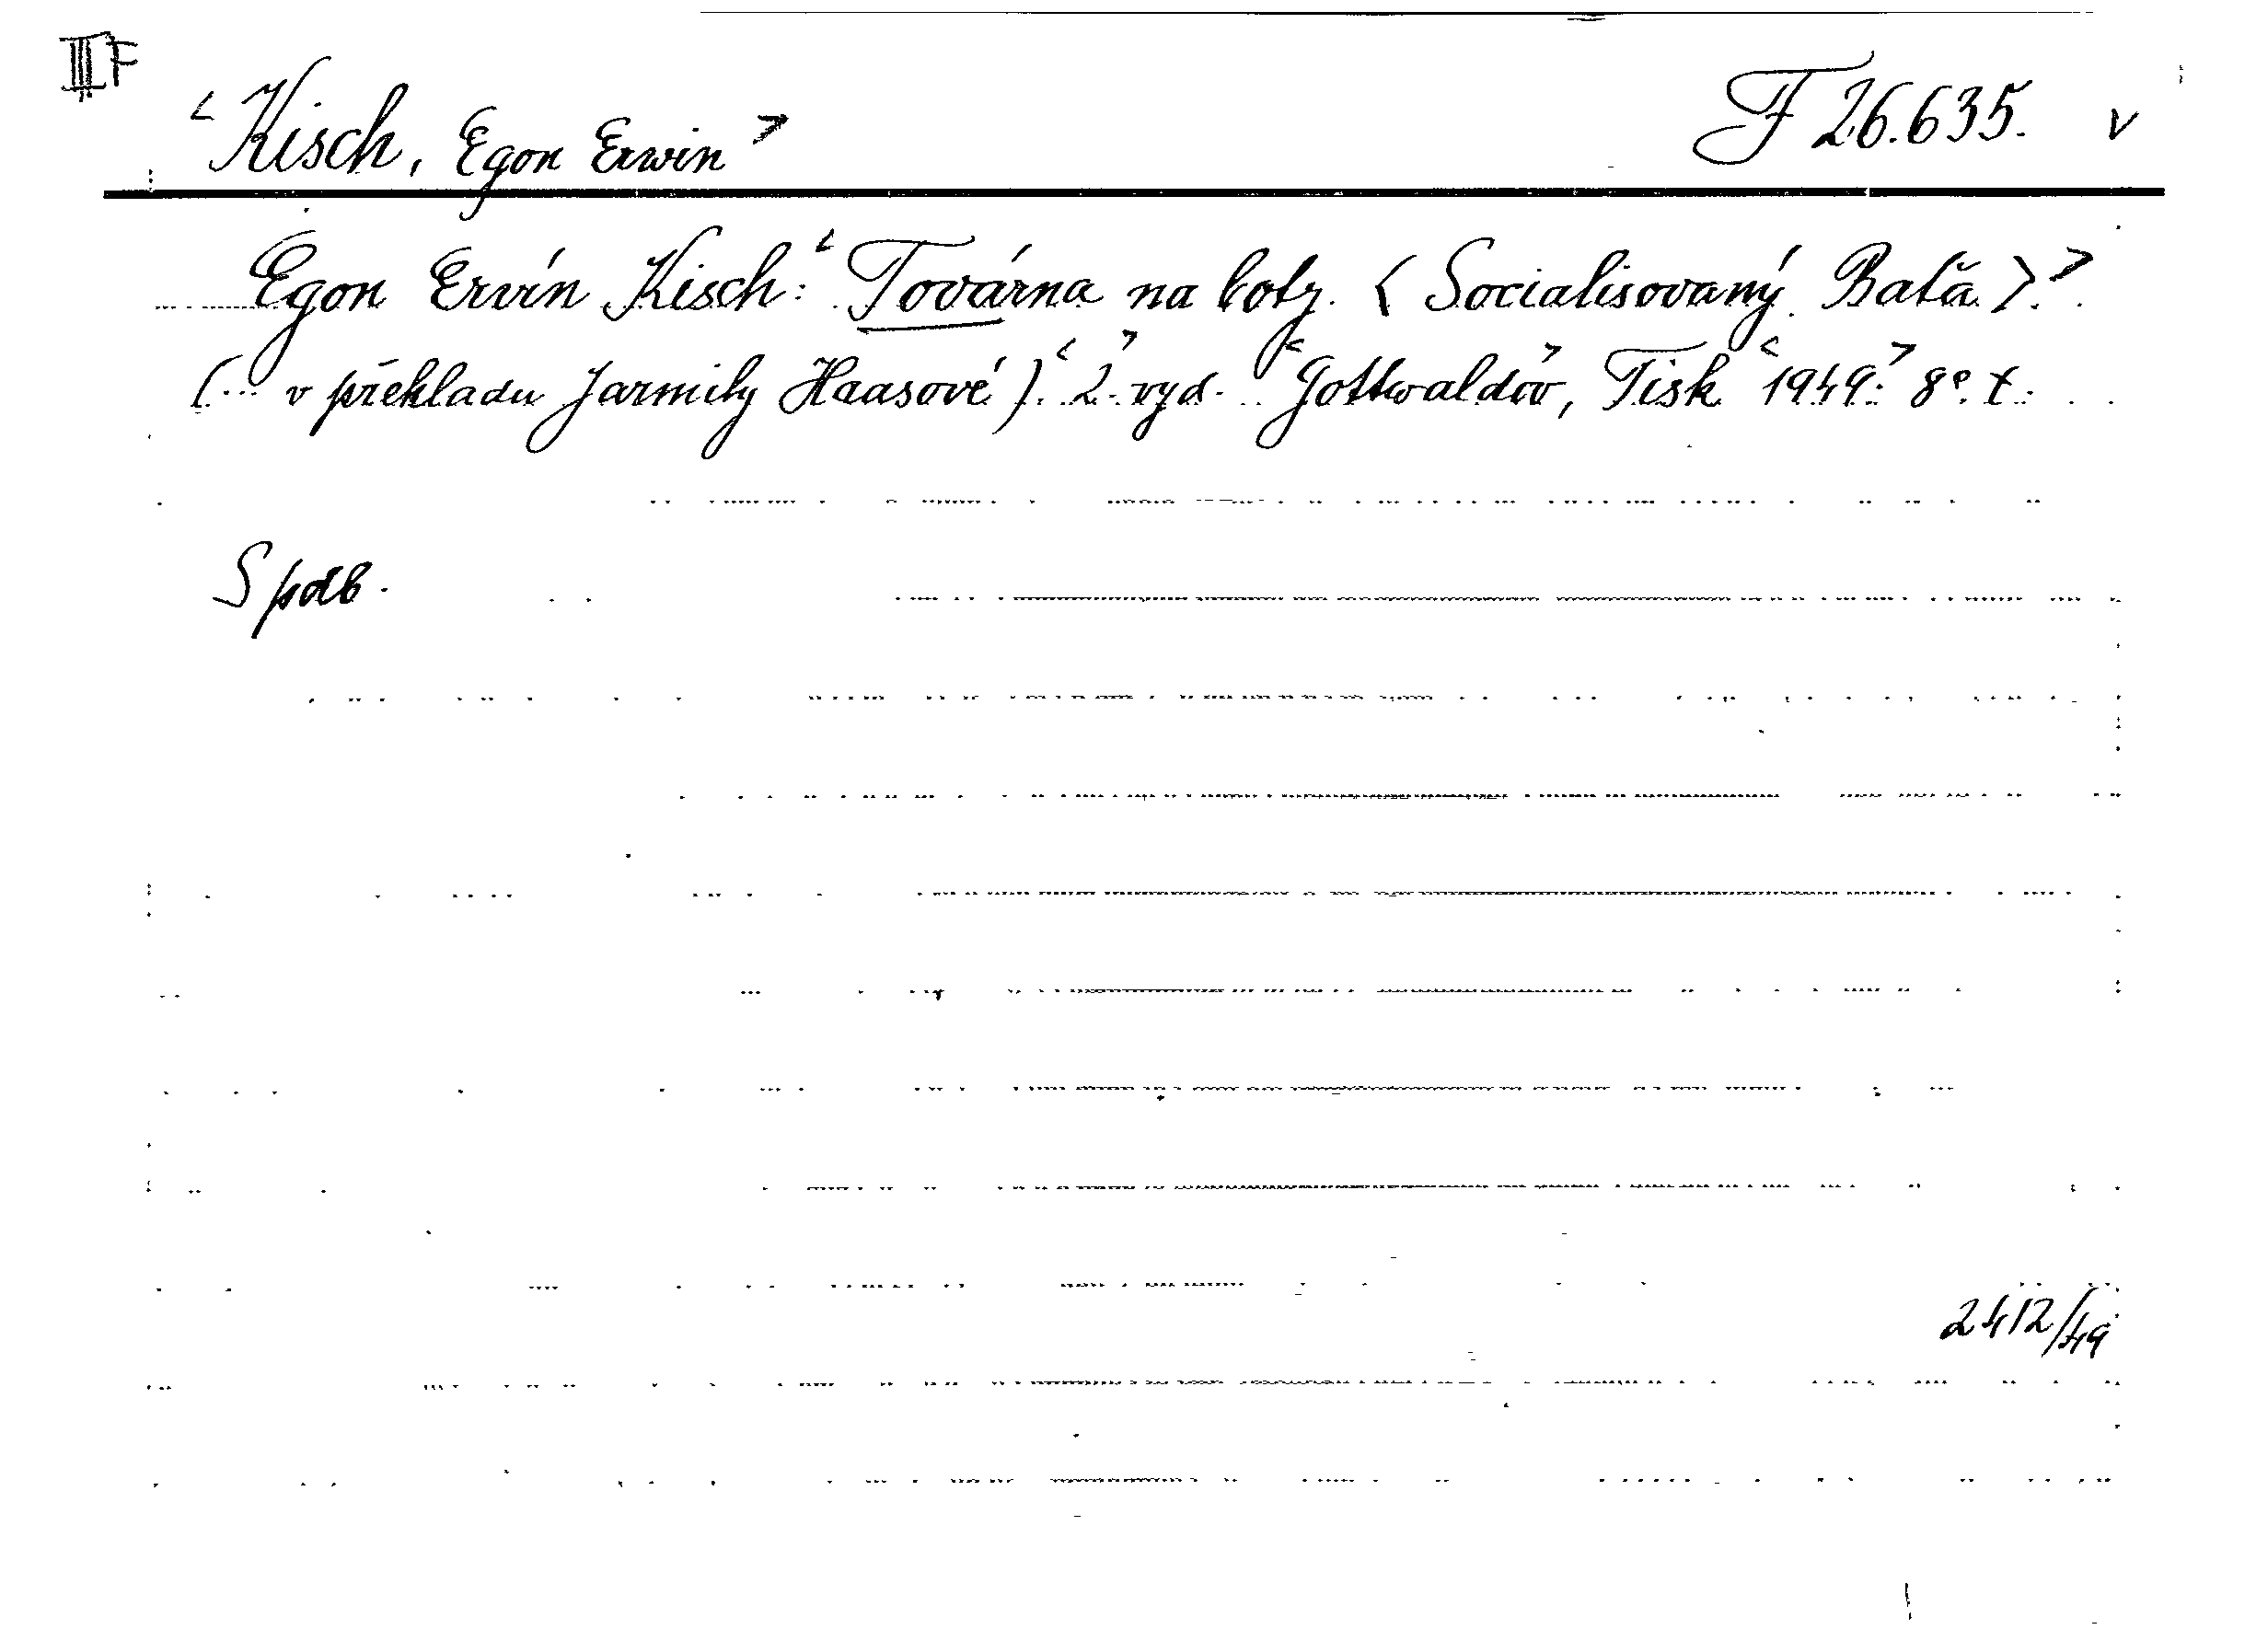 III F
<Kisch, Egon Erwin> F 26.635. v
Egon Ervín Kisch: <Továrna na boty. <Socialisovaný Baťa>.>
(... v překladu Jarmily Haasové). <2.> vyd. <Gottwaldov>, Tisk <1949.> 8°. t.
S podb.
2412/49